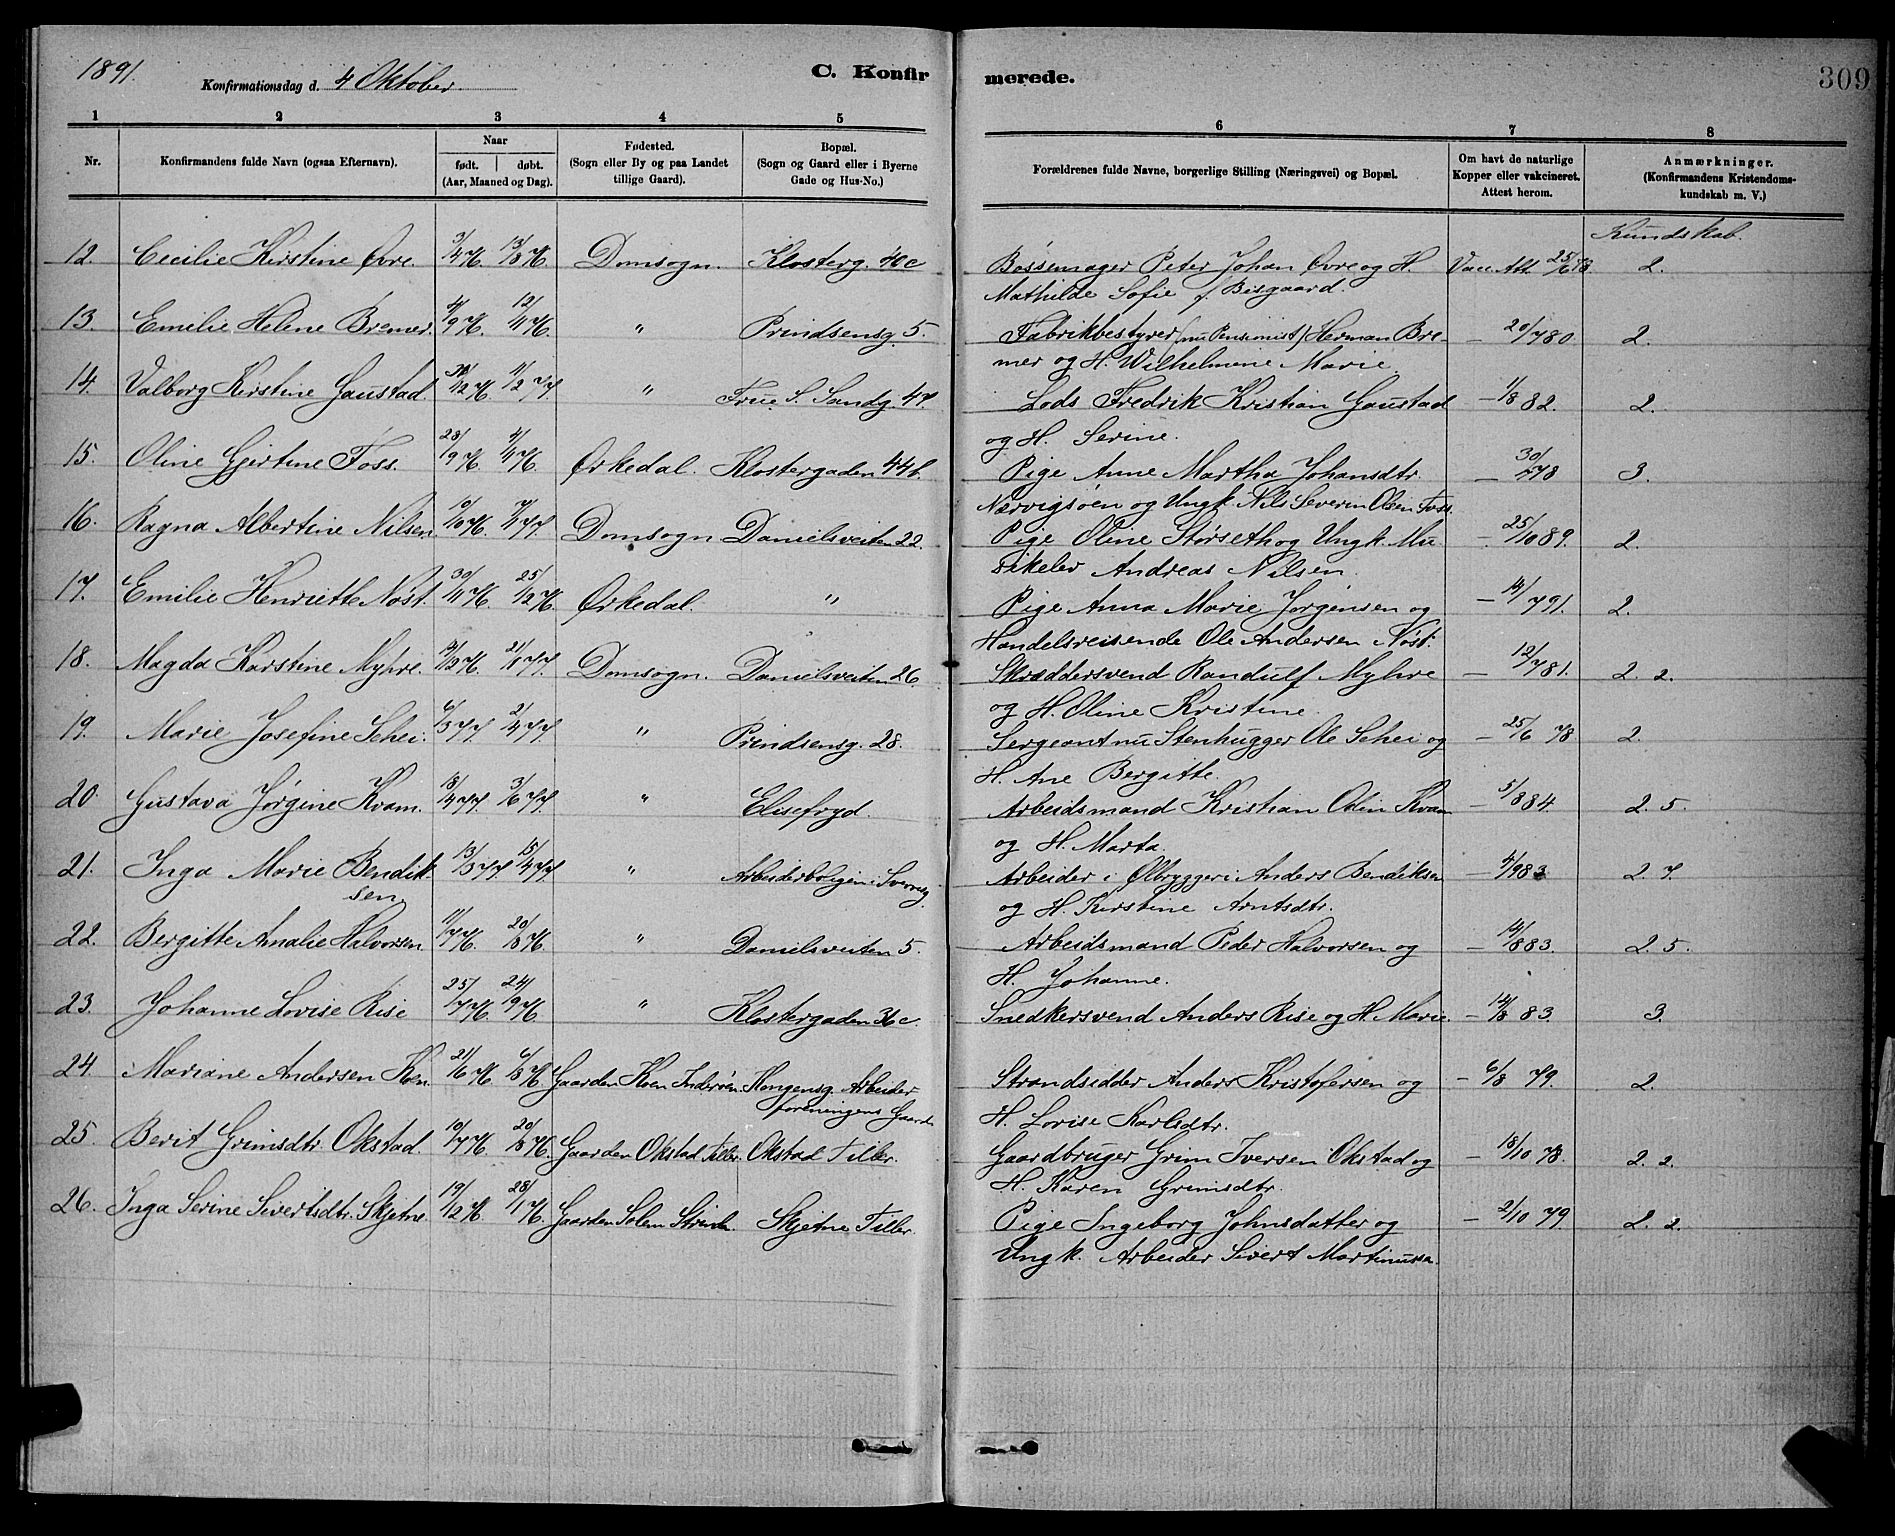 1891.
Konfirmationsdag d. 4 Oktober
C. Konfir
merede.
309
1 2 3 4 5 6 7 8
Nr.
Konfirmandens fulde Navn (ogsaa Efternavn).
Naar
født. døbt.
(Aar, Maaned og Dag).
Fødested.
(Sogn eller By og paa Landet
tillige Gaard).
Bopæl.
(Sogn og Gaard eller i Byerne
Gade og Hus-No.)
Forældrenes fulde Navne, borgerlige Stilling (Næringsvei) og Bopæl.
Om havt de naturlige
Kopper eller vakcineret.
Attest herom.
Anmærkninger.
(Konfirmandens Kristendoms-
kundskab m. V.)
Kundskab.
12. Cecilie Kirstine Øvre. 3/4 76. 13/8 76. Domsogn. Klosterg. 40c Bøssemager Peter Johan Øvre og H. Vacc. Att. 25/6 78 2.
Mathilde Sofie f. Bisgaard.
13. Emilie Helene Bremer. 4/9 76. 12/11 76. " Prindsensg. 5. Fabrikbestyrer (nu Pensionist) Herman Bre- — 20/7 80 2.
mer og H. Wilhelmine Marie.
14. Valborg Kirstine Gaustad. 31/12 76. 11/2 77. " Frue S. Sandg. 47. Lods Fredrik Kristian Gaustad — 1/8 82. 2.
og H. Serine.
15. Oline Gjertine Foss. 28/9 76. 4/11 76. Ørkedal. Klostergaden 44b. Pige Anne Martha Johansdtr. — 30/7 78 3.
Nervigsøen og Ungk. Nils Severin Olsen Foss.
16. Ragna Albertine Nilsen. 10/10 76. 7/1 77. Domsogn Danielsveiten 22. Pige Oline Størseth og Ungk. Mu — 25/10 89. 2.
sikelev Andreas Nilsen.
17. Emilie Henriette Nøst. 30/11 76. 25/12 76. Ørkedal. " Pige Anna Marie Jørgensen og — 14/7 91. 2.
Handelsreisende Ole Andersen Nøst.
18. Magda Karstine Myhre. 12/12 76. 21/1 77. Domsogn. Danielsveiten 26. Skræddersvend Randulf Myhre — 12/7 81. 2. 2.
og H. Oline Kristine.
19. Marie Josefine Schei. 6/3 77. 2/4 77. " Prindsensg. 28. Sergeant nu Stenhugger Ole Schei og — 25/6 78 2.
H. Ane Bergitte.
20. Gustava Jørgine Kvam. 18/4 77. 3/6 77. " Elisefryd. Arbeidsmand Kristian Odin Kvam — 5/8 84. 2. 5.
og H. Marta.
21. Inga Marie Bendik- 13/3 77. 15/4 77. " Arbeiderboligen i Sverresg. Arbeider i Ølbryggeri Anders Bendiksen — 4/9 83 2. 7.
sen. og H. Kirstine Arntsdtr.
22. Bergitte Amalie Halvorsen. 11/7 76. 20/8 76. " Danielsveiten 5. Arbeidsmand Peder Halvorsen og — 14/8 83. 2. 5.
H. Johanne.
23. Johanne Lovise Rise 25/7 76. 24/9 76. " Klostergaden 36c. Snedkersvend Anders Rise og H. Marie. — 14/8 83. 3.
24. Mariane Andersen Koen. 21/6 76 6/8 76 Gaarden Koen Inderøen. Kongensg. Arbeider Strandsidder Anders Kristofersen og — 6/8 79. 2.
foreningens Gaard. H. Lovise Karlsdtr.
25. Berit Grimsdtr. Okstad. 10/7 76. 20/8 76. Gaarden Okstad Tiller. Okstad Tiller. Gaardbruger Grim Iversen Okstad og — 18/10 78. 2. 2.
H. Karen Grimsdtr.
26. Inga Serine Sivertsdtr. Skjetne. 19/12 76. 28/1 76. Gaarden Solem Strinda Skjetne Tiller. Pige Ingeborg Johnsdatter og — 2/10 79 2. 2.
Ungk. Arbeider Sivert Martinussen.